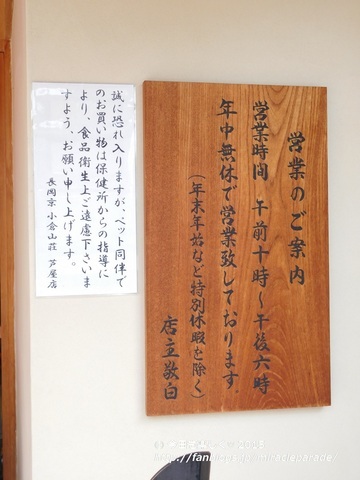 営業のご案内
営業時間 午前十時〜午後六時
年中無休で営業致しております。
(年末年始など特別休暇を除く)
店主敬白
誠に恐れ入りますが、ペット同伴で
のお買い物は保健所からの指導に
より、食品衛生上ご遠慮下さいま
すよう、お願い申し上げます。
長岡京 小倉山荘 芦屋店